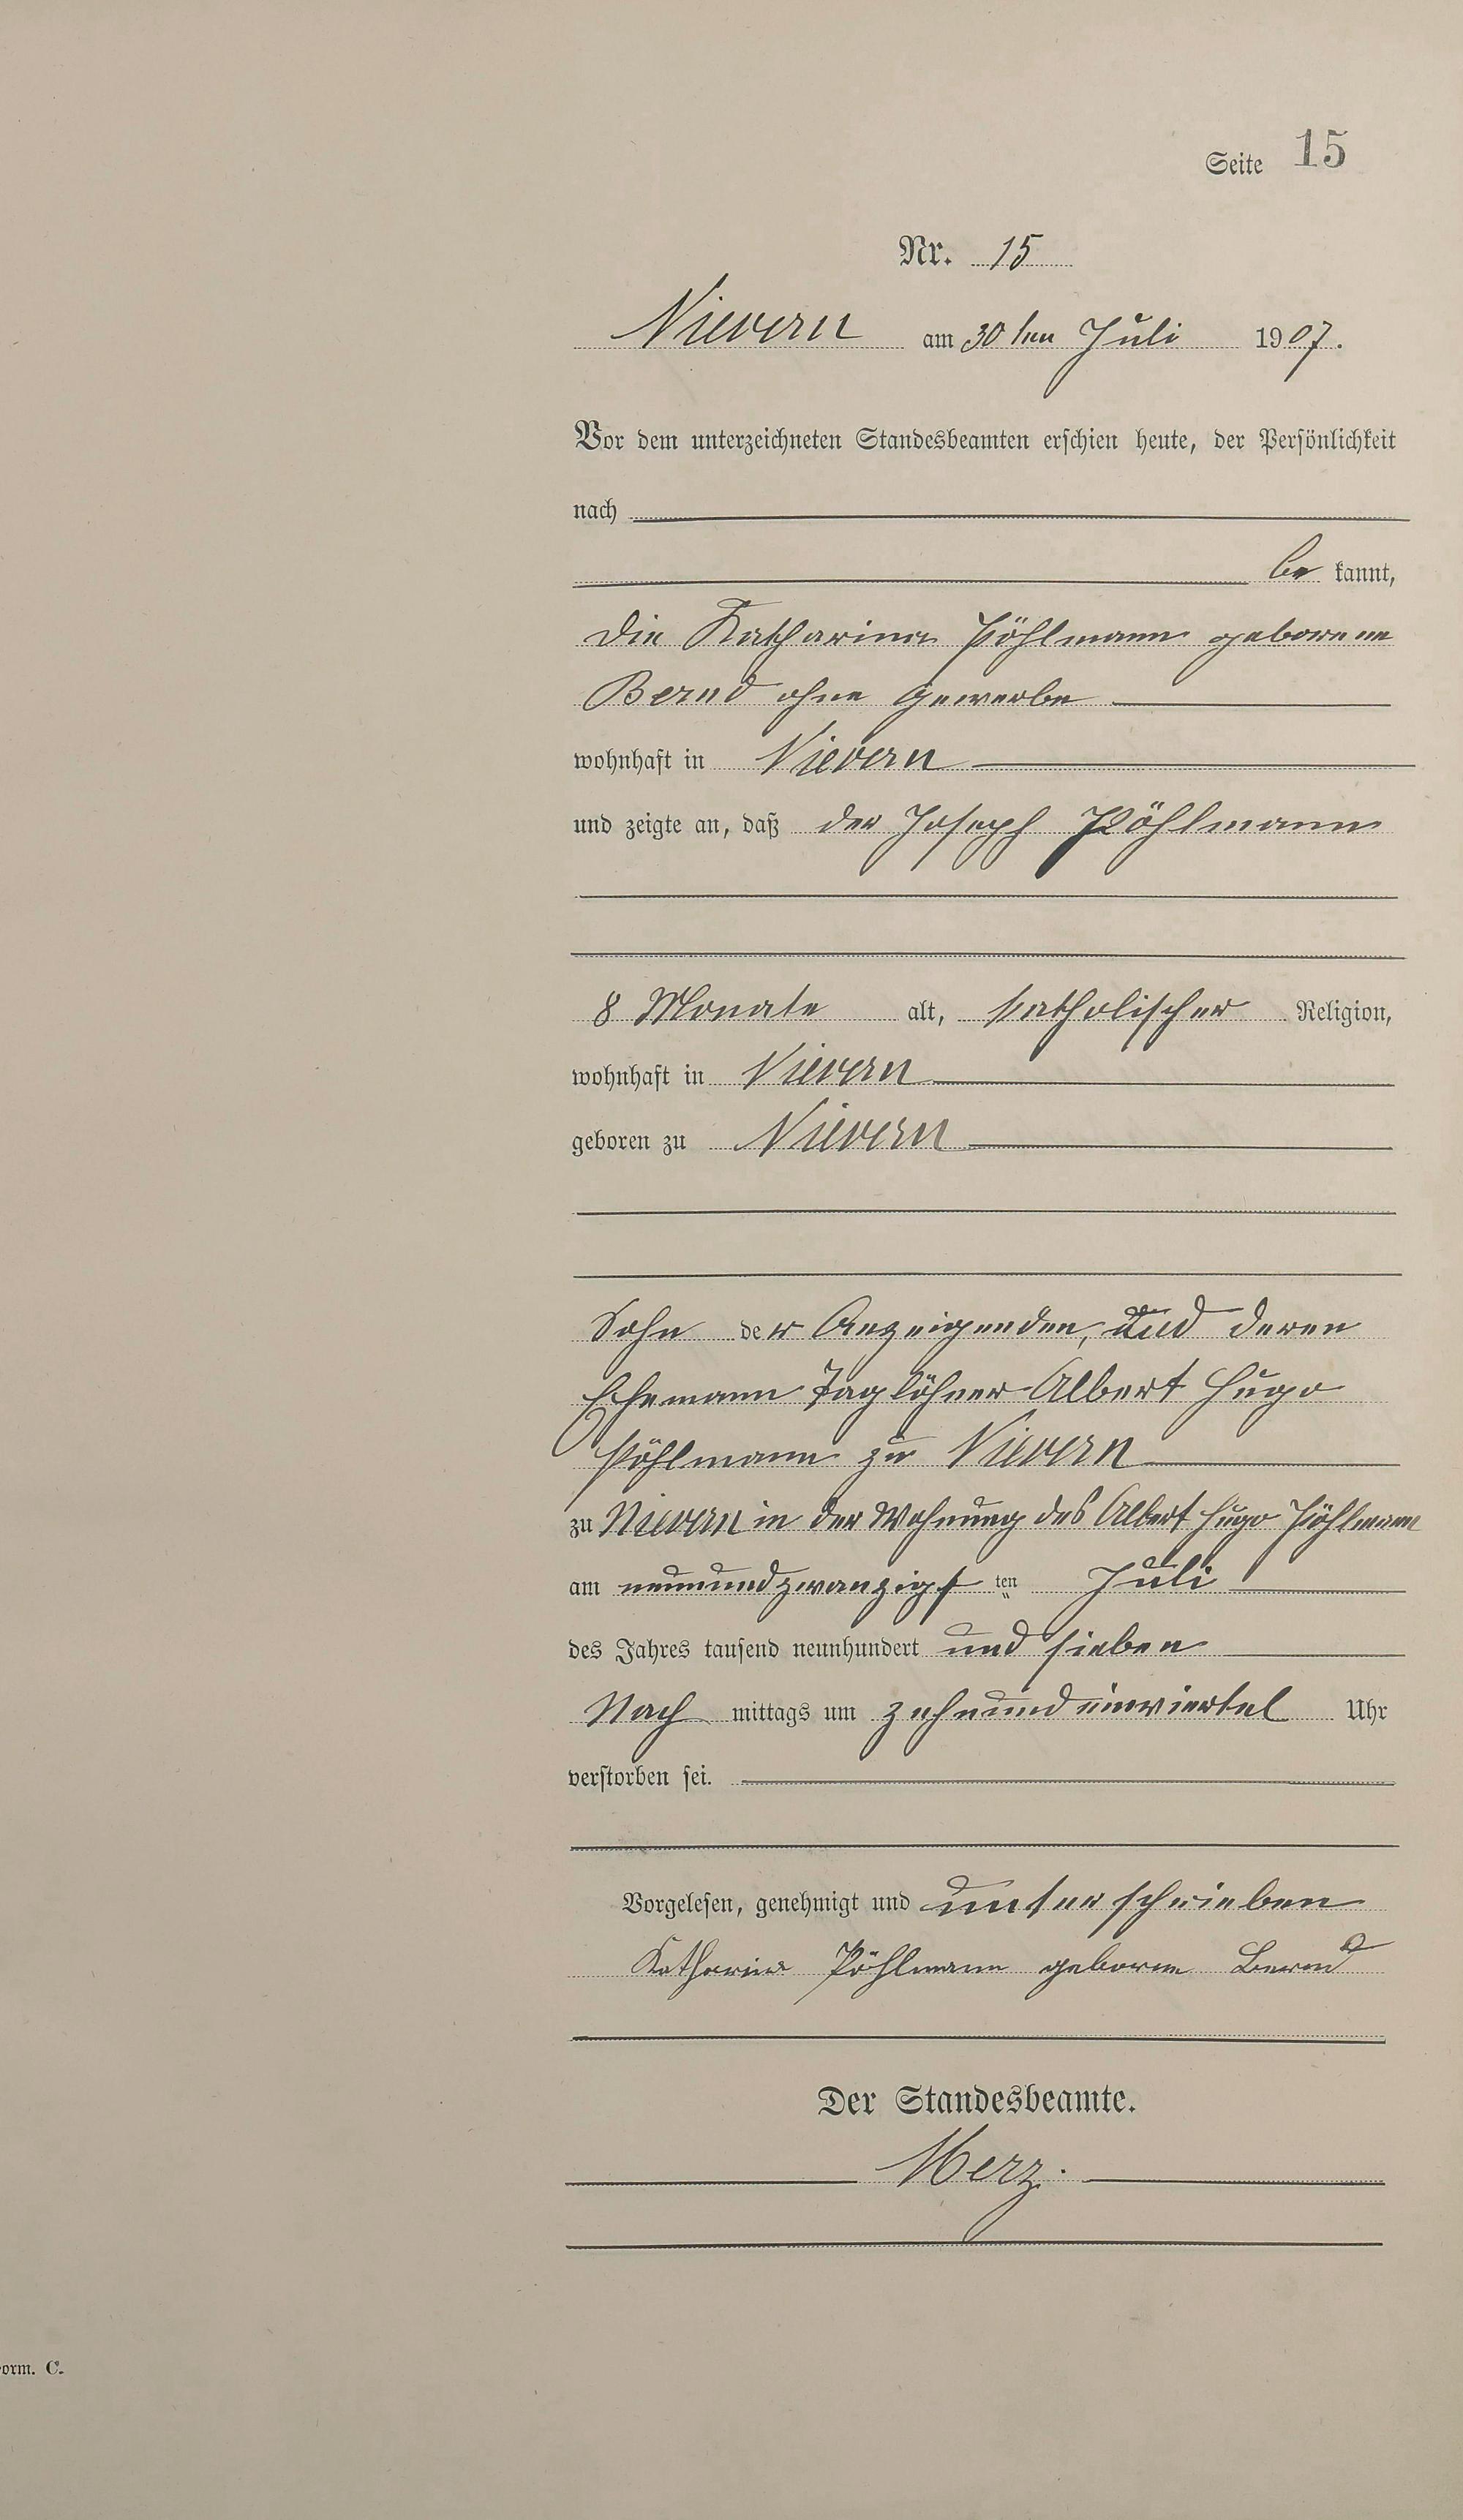 Seite 15
Nr. 15
Nievern am 30ten Juli 1907.
Vor dem unterzeichneten Standesbeamten erschien heute, der Persönlichkeit
nach
be kannt,
die Katharina Pöhlmann geborene
Bernd ohne Gewerbe
wohnhaft in Nievern
und zeigte an, daß der Joseph Pöhlmann
8 Monate alt, katholischer Religion,
wohnhaft in Nievern
geboren zu Nievern
Sohn der Anzeigenden, und deren
Ehemann Taglöhner Albert Hugo
Pöhlmann zu Nievern
zu Nievern in der Wohnung des Albert Hugo Pöhlmann
am neunundzwanzigsten Juli
des Jahres tausend neunhundert und sieben
Nach mittags um zehnundeinviertel Uhr
verstorben sei.
Vorgelesen, genehmigt und unterschrieben
Katharina Pöhlmann geborne Bernd
Der Standesbeamte.
Merz.
orm. C.